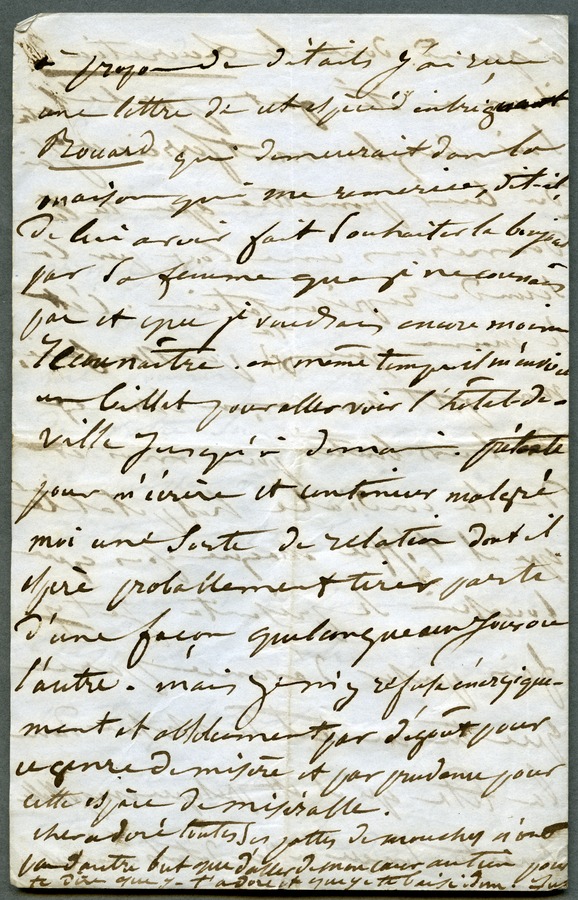 à propos de détails j'ai reçu
une lettre de cet espèce d'intrigant
Rouard qui demeurait dans la
maison qui me remercie, dit-il
de lui avoir fait souhaiter le bonjour
par sa femme que je ne connais
pas et que je voudrais encore moins
connaître. en même temps il m'envoie
un billet pour aller voir l'hôtel de
ville jusqu'à demain. prétexte
pour m'écrire et continuer malgré
moi une sorte de relation dont il
espère probablement tirer parti
d'une façon quelconque un jour ou
l'autre. mais je m'y refuse énergique-
ment et absolument par dégoût pour
ce genre de misère et par prudence pour
cette espèce de misérable.
cher adoré toutes ces pattes de mouches n'ont
pas d'autre but que d'aller de mon cœur au tien pour
te dire que je t'adore et que je te baise